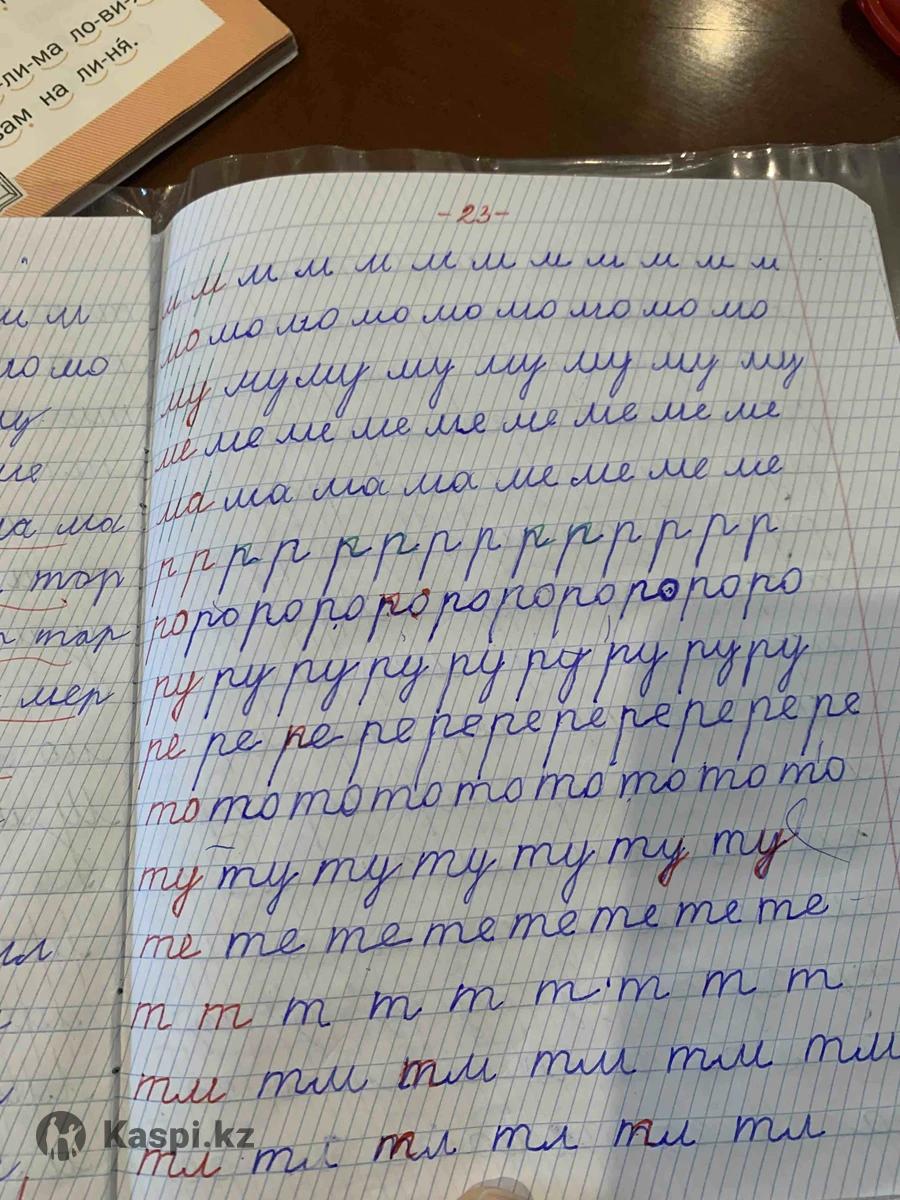 -ли-ма ло-ви-
вам на ли-ня́.
мо
ма
тор
тар
мер
-23-
м м м м м м м м м м м м
мо мо мо мо мо мо мо мо мо
му му му му му му му му
ме ме ме ме ме ме ме ме ме
ма ма ма ма ме ме ме ме
р р р р р р р р р р р р р р
ро ро ро ро ро ро ро ро ро ро ро
ру ру ру ру ру ру ру ру ру
ре ре ре ре ре ре ре ре ре ре ре
то то то то то то то то то
ту ту ту ту ту ту ту
те те те те те те те те
т т т т т т т т т
тм тм тм тм тм тм
тл тл тл тл тл тл
Kaspi.kz